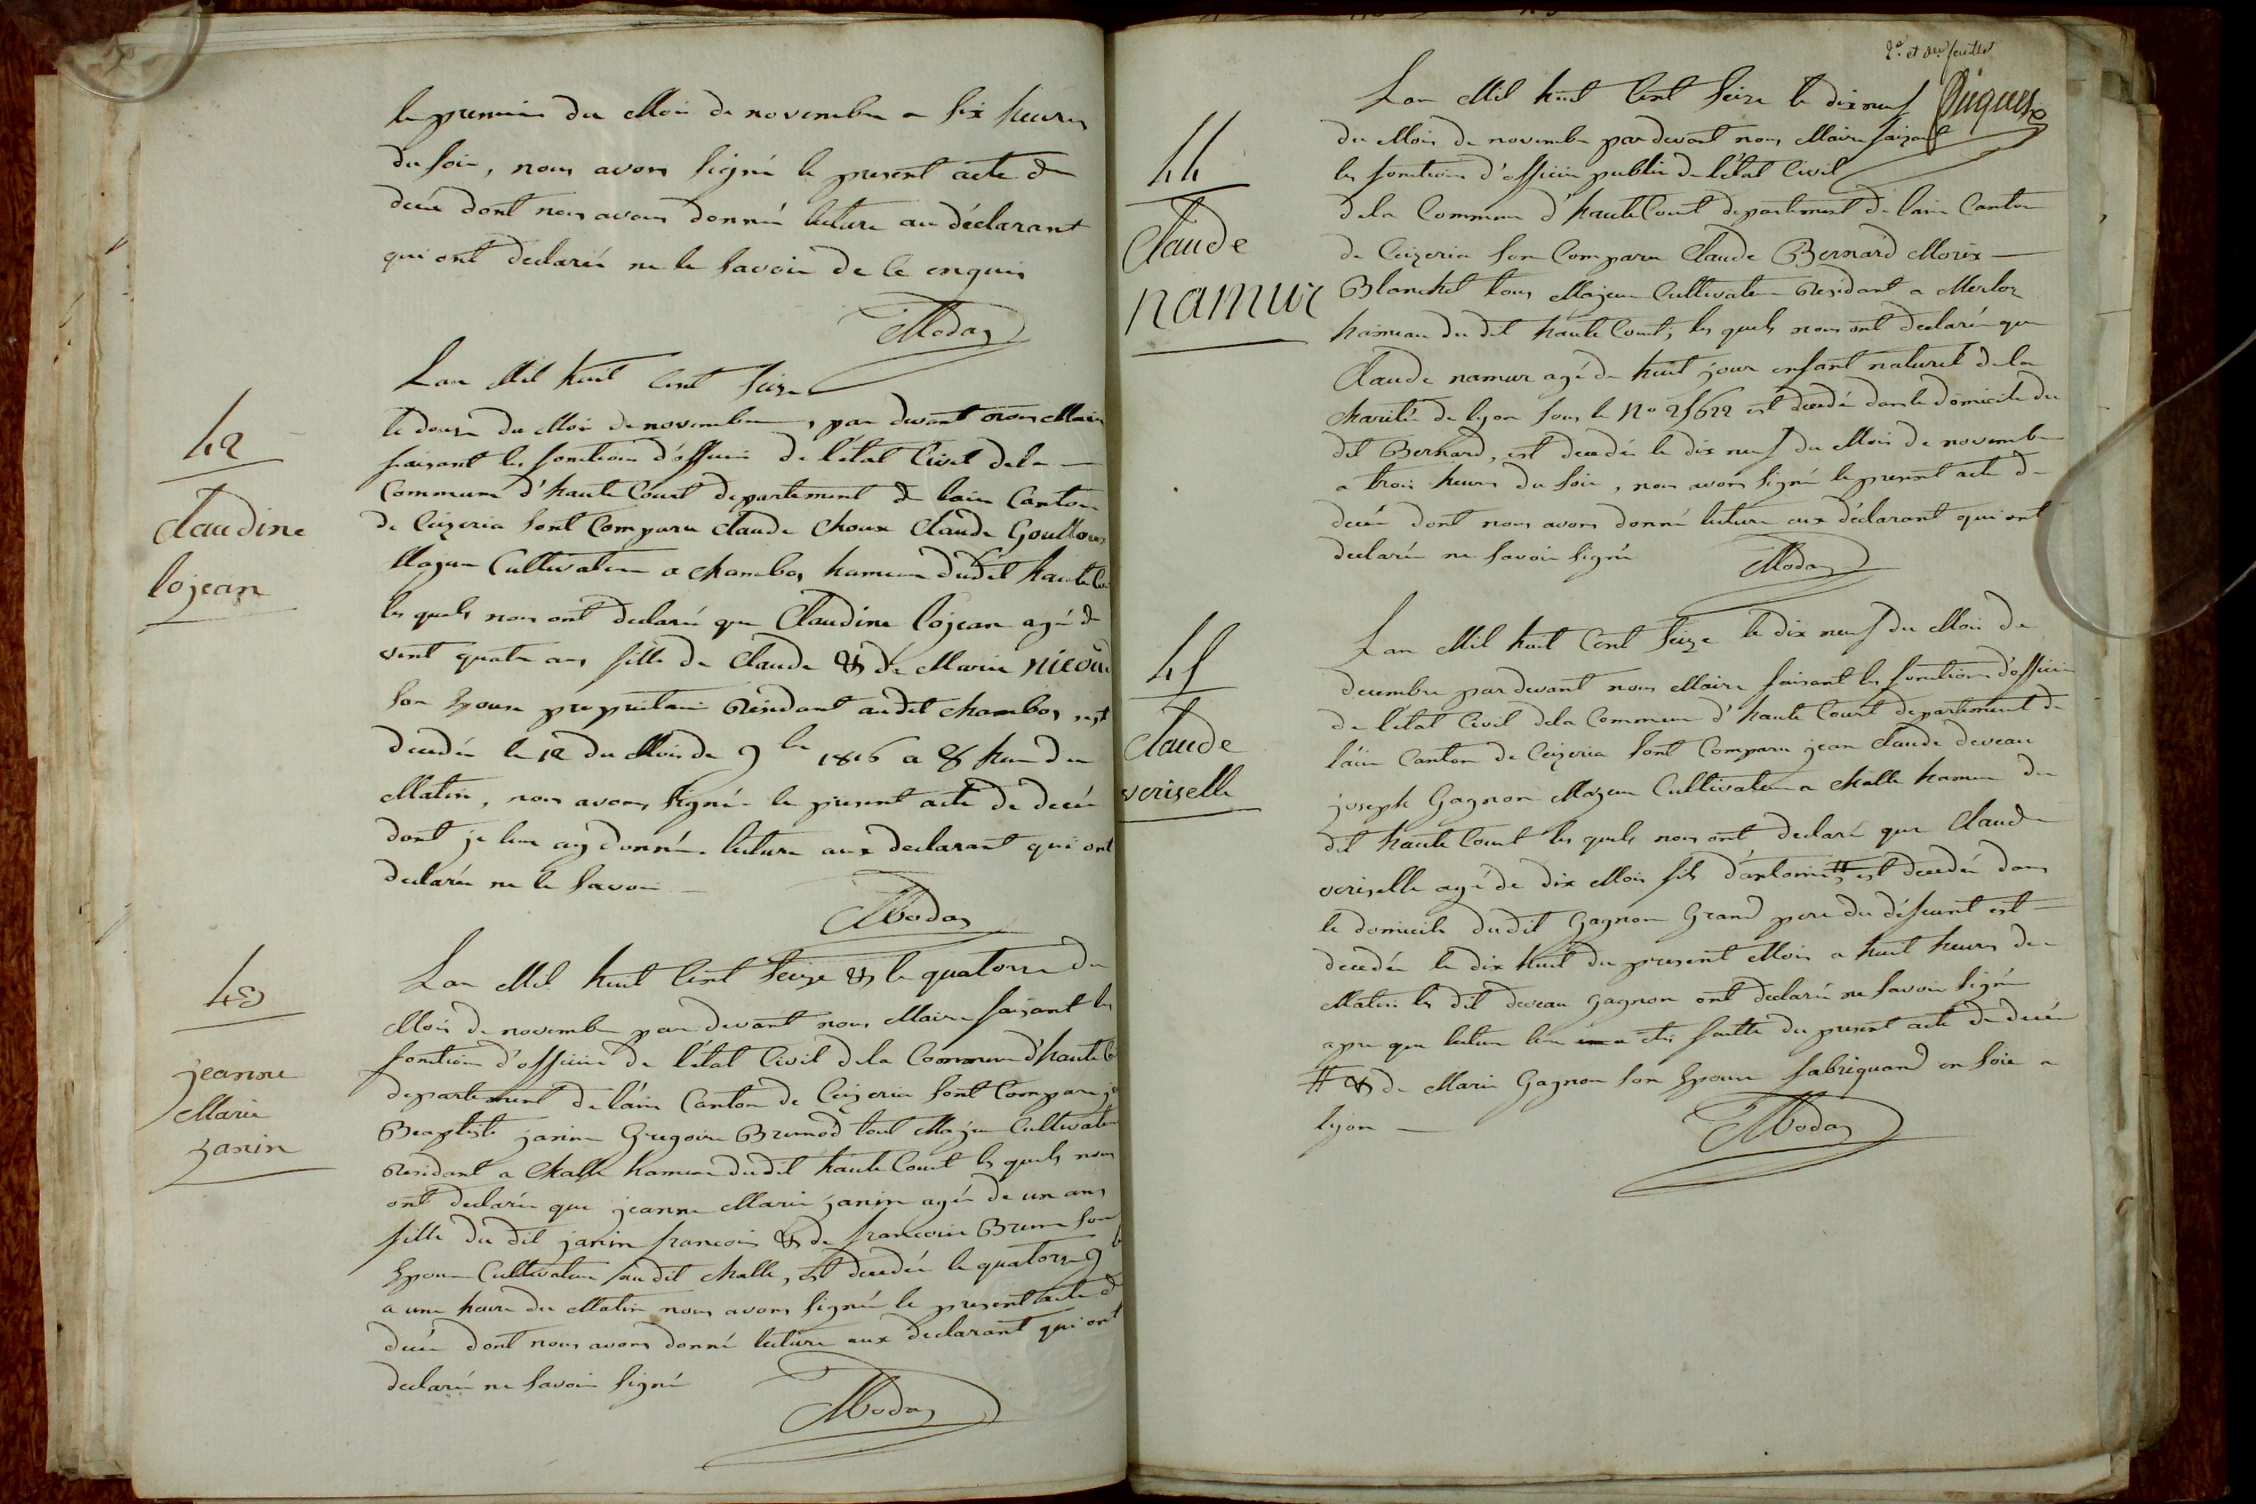 le premier du Mois de novembre a six heures
du soir, nous avons signé le present acte de
decée dont nous avons donnée lecture au déclarant
qui ont declarée ne le savoir de ce enquis
Modas
42
Claudine
lojean
Lan Mil huit Cent seize
le douze du Mois de novembre, par devant nous Maire
faisant les fonctions d'officier de l'état Civil de la
Commune d'haute Court departement de lain Canton
de Ceizeria sont Comparu Claude Choux Claude
Majeur Cultivateur a chambos hameau dudit haute
les quels nous ont declaré que Claudine lojean agé de
vent quatre ans fille de Claude & de Marie
son Epouse proprietaire Résidant audit chambos, est
decedée le 12 du Mois de 9bre 1816 a 8 heure du
Matin, nous avons signée le present acte de decée
dont je leur ay donnée lecture aux declarant qui ont
declarée ne le savoir
Modas
43
jeanne
Marie
janin
Lan Mil huit Cent seize & le quatorze du
Mois de novembre par devant nous Maire faisant les
fonctions d'officier de l'état Civil de la Commune d'haute
departement de l'ain Canton de Ceizeria sont Comparu
Beaptiste janin Gregoire Brunod tout Majeur Cultivateur
Residant a Challe hameau dudit haute Court les quels nous
ont declarée que jeanne Marie janin agée de un ans
fille du dit janin francois & de francoise Brun son
Epouse Cultivateur audit Challe, est decedée le quatorze 9b
a une heure du Matin nous avons signée le present acte de
decée dont nous avons donné lecture aux declarant qui ont
declarée ne savoir signé
Modas
2e et der feuillet
44
Claude
namur
Lan Mil huit Cent seize le dix neuf
du Mois de novembre par devant nous Maire faisant
les fonctions d'officier public de l'état Civil
de la Commune d'haute Court departement de lain Canton
de Ceizeria son Comparu Claude Bernard Morix
Blanchet tous Majeur Cultivateur Residant a Merloz
hameau du dit haute Court, les quels nous ont declarée que
Claude namur agé de huit jour enfant naturel de la
charité de lyon sous le No 25622 est decedé dans le domicile du
dit Bernard, est decedée le dix neuf du Mois de novembre
a trois heures du soir, nous avons signé le present acte de
decée dont nous avons donné lecture aux déclarant qui ont
declarée ne savoir signée
Modas
45
Claude
veriselle
Lan Mil huit Cent seize le dix neuf du Mois de
decembre par devant nous Maire faisant les fonctions d'officier
de l'état Civil de la Commune d'haute Court departement de
l'ain Canton de Ceizeria sont Comparu jean Claude deveau
joseph Gagnon Majeur Cultivateur a Challe hameau du
dit haute Court les quels nous ont declaré que Claude
veriselle agé de dix Mois fils d'antoine # est decedée dans
le domicile dudit Gagnon Grand pere du défeunt est
decedée le dix huit du present Mois a huit heures du
Matin les dit deveau Gagnon ont declarée ne savoir signé
apre que lecture leur a eté faitte du present acte de decée
# & de Marie Gagnon son Epouse fabriquand en soie a
lyon
Modas